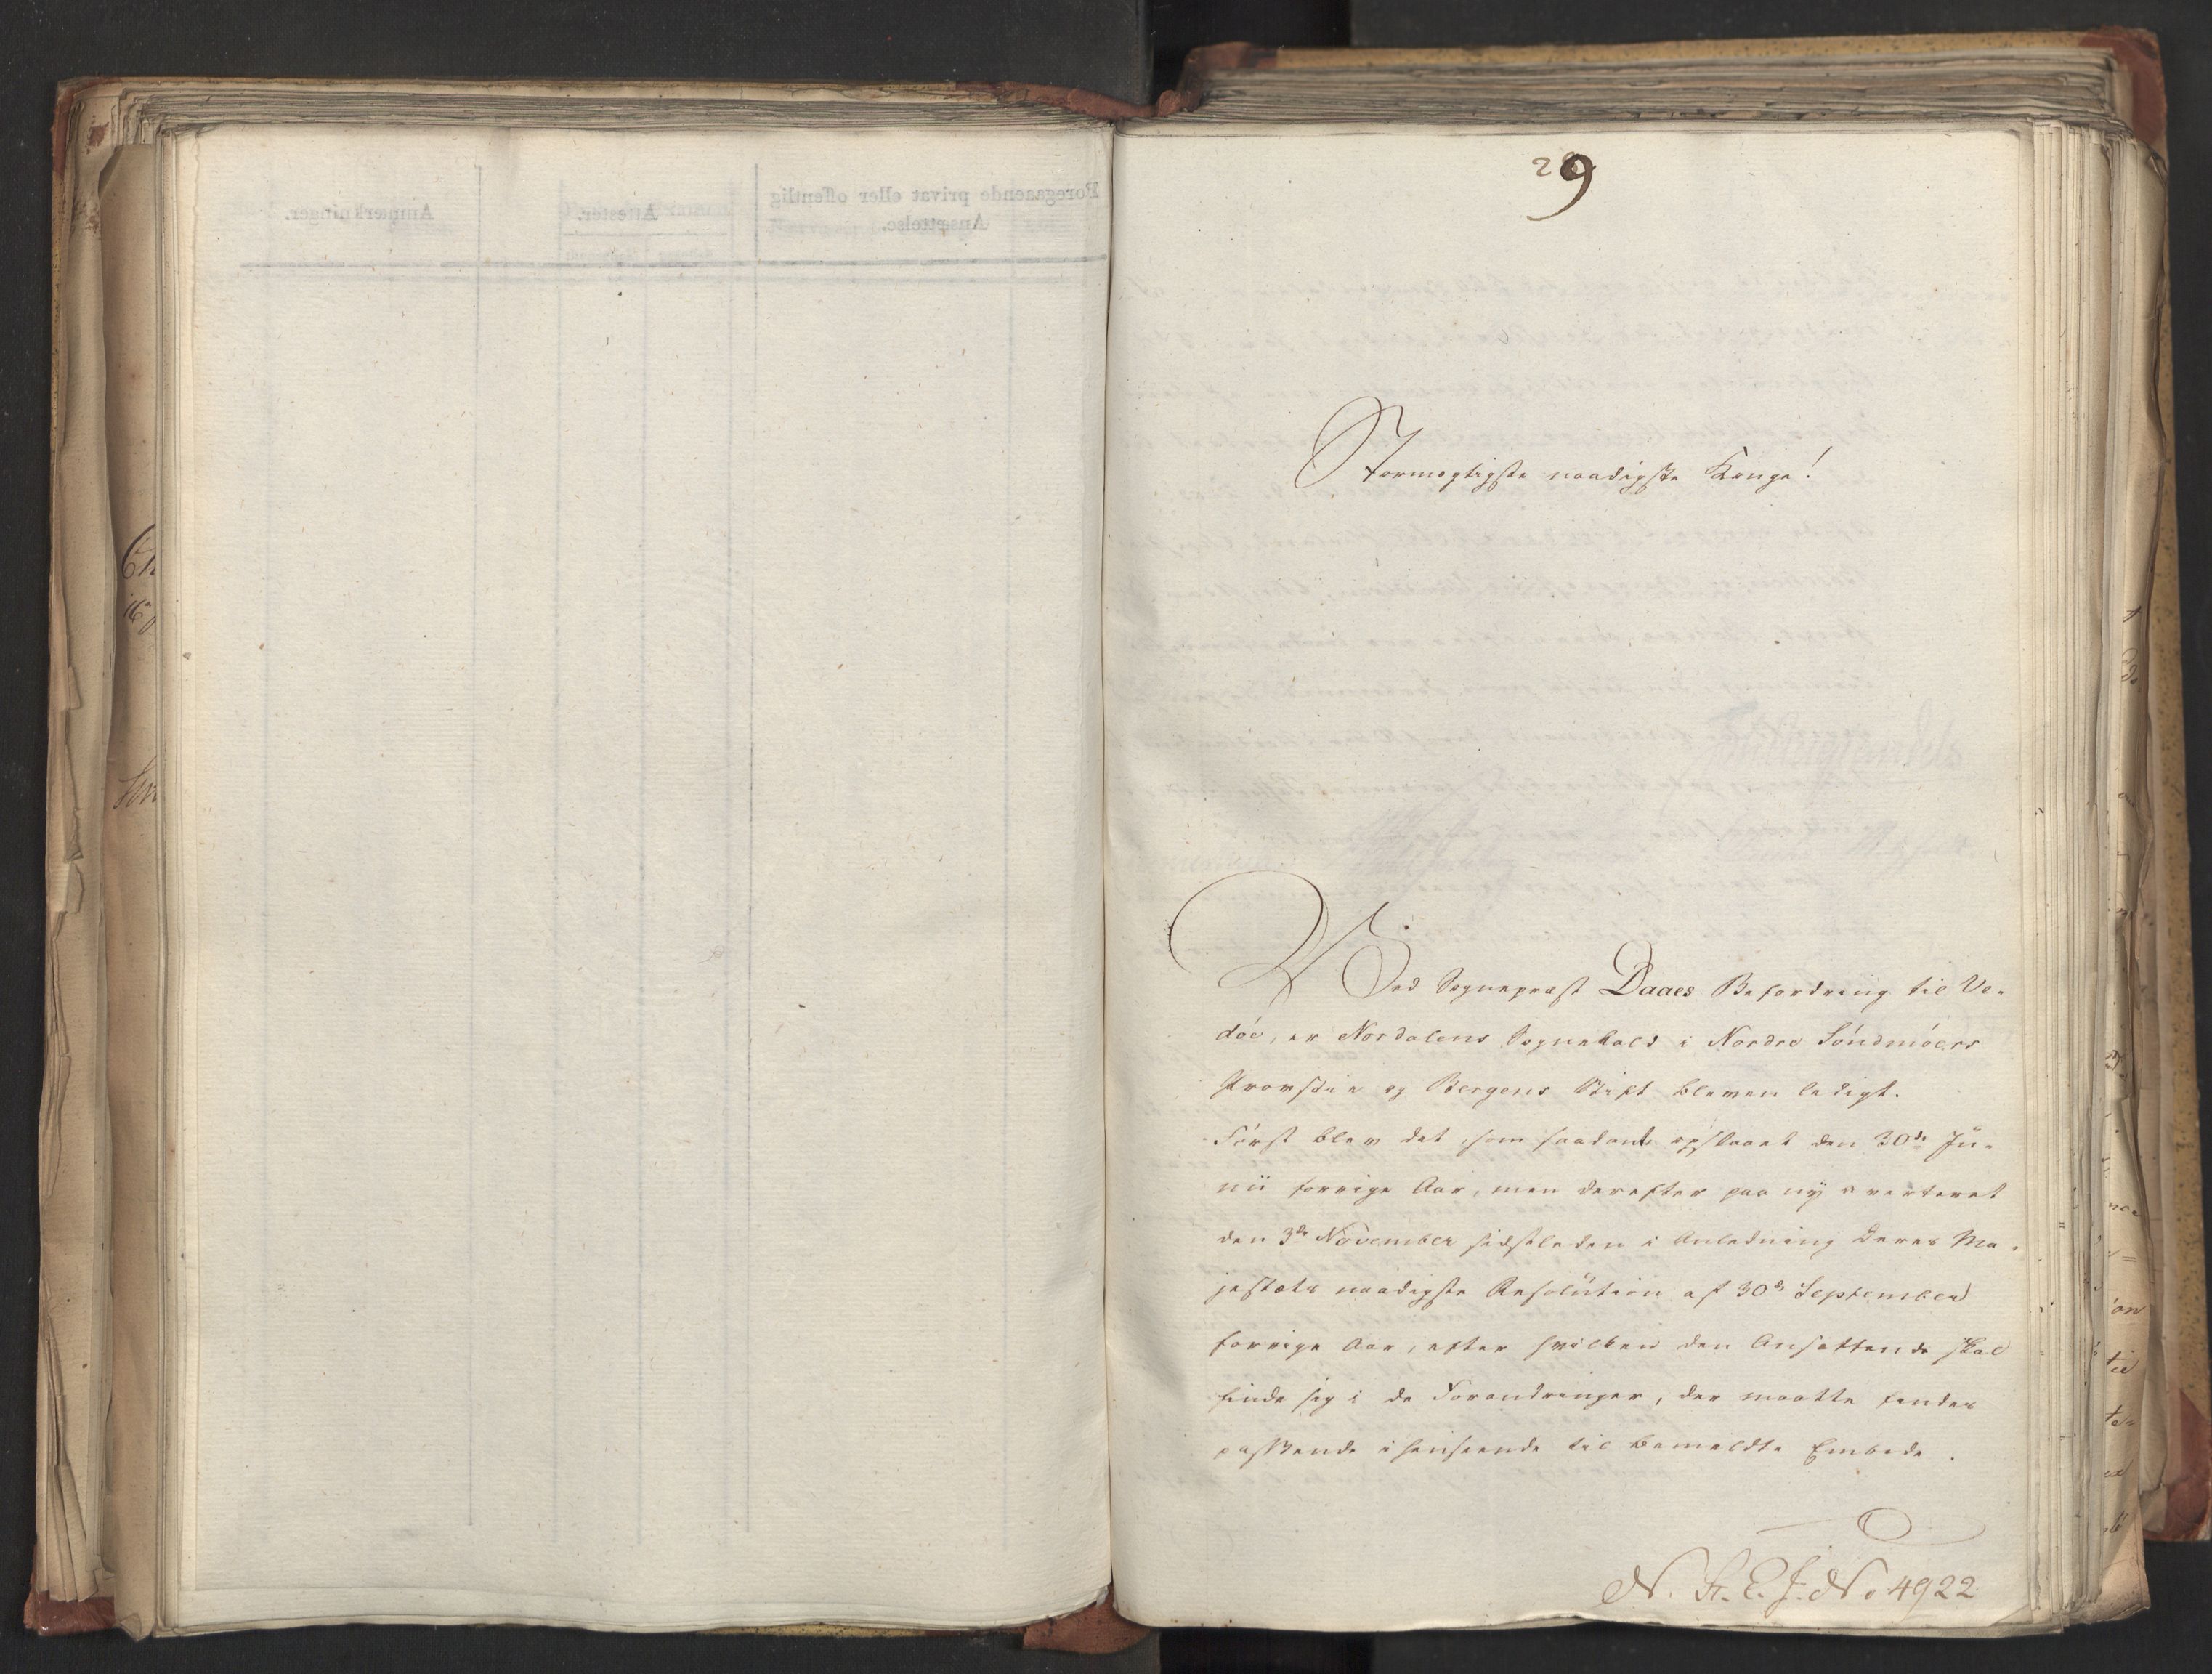 Foregaaende privat eller offentlig
Ansættelse.
Attester.
Anmærkninger.
29
Stormægtigste naadigste Konge!
Ved Sognepræst Daaes Befordring til Ve-
döe, er Nordalens Sognekald i Nordre Söndmöers
Provstie og Bergens Stift bleven ledigt.
Först blev det, som saadant opslaaet den 30de Ju-
nii forrige Aar, men derefter paa ny averteret
den 3de November sidstleden i Anledning Deres Ma-
jestæts naadigste Resolution af 30de September
forrige Aar, efter hvilken den Ansættende skal
finde sig i de Forandringer, der maatte findes
passende i henseende til bemeldte Embede.
N. St. E. J. No 4922